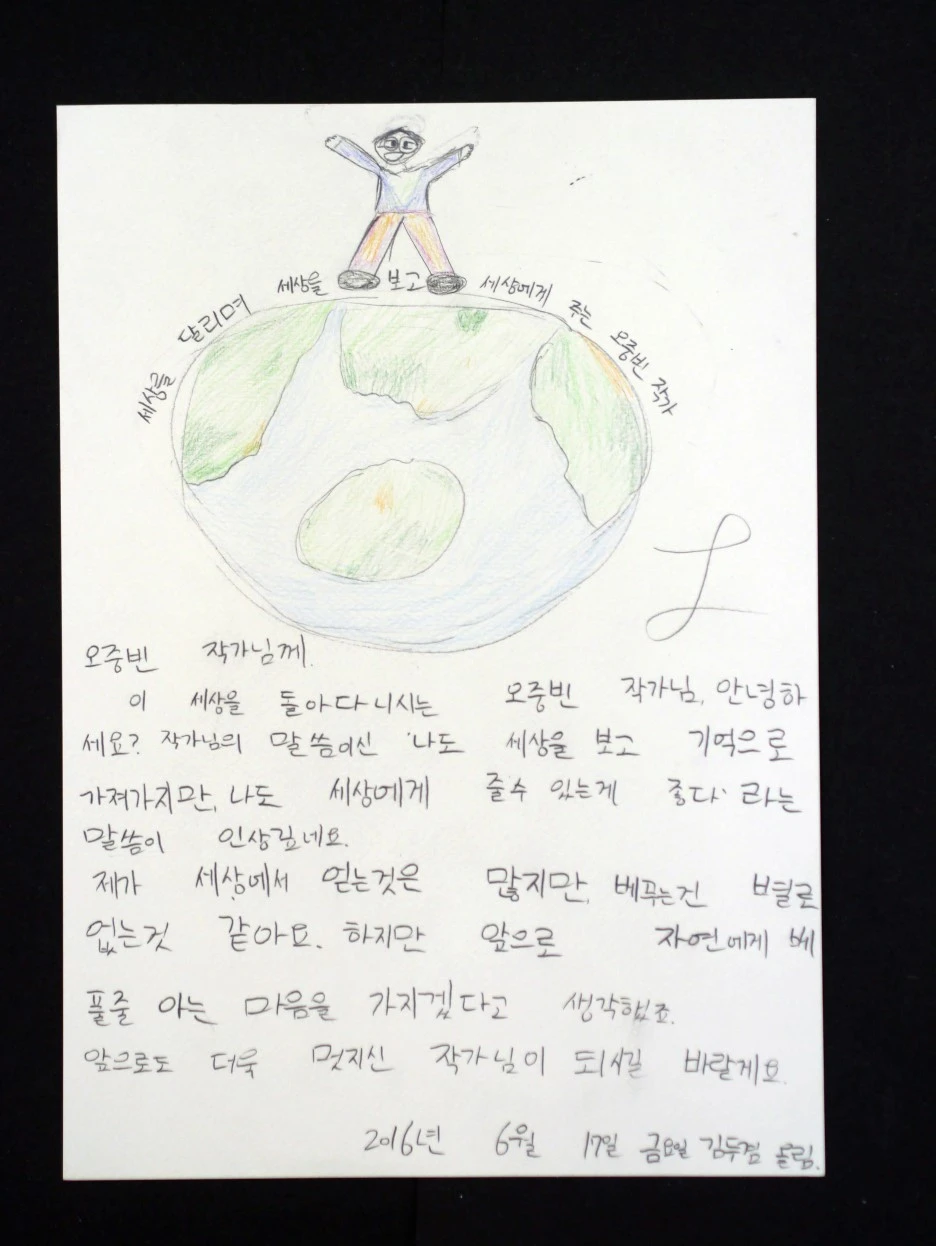 세상을 달리며 세상을 보고 세상에게 주는 오중빈 작가
오중빈 작가님께.
이 세상을 돌아다니시는 오중빈 작가님, 안녕하
세요? 작가님의 말씀이신 '나도 세상을 보고 기억으로
가져가지만, 나도 세상에게 줄수 있는게 좋다' 라는
말씀이 인상깊네요.
제가 세상에서 얻는것은 많지만, 베푸는건 별로
없는것 같아요. 하지만 앞으로 자연에게 베
풀줄 아는 마음을 가지겠다고 생각했죠.
앞으로도 더욱 멋지신 작가님이 되시길 바랄게요.
2016년 6월 17일 금요일 김두겸 올림.